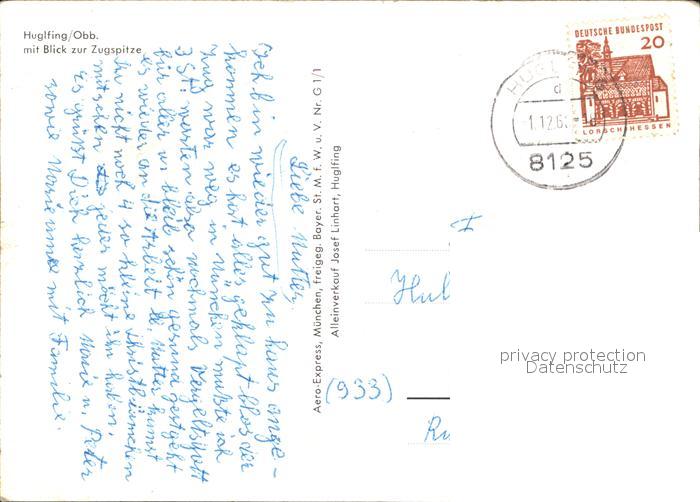 Huglfing/Obb.
mit Blick zur Zugspitze
Liebe Mutter,
Ich bin wieder gut zu haus ange-
kommen es hat alles geklapt blos der
Zug war weg in München mußte ich
1 St. warten also nochmals Vergeltsgott
für alles u. bleib schön gesund
es wieder an die Arbeit L. Mutter kannst
Du nicht noch 4 so kleine Christbäumchen
mitschicken jeder möcht ihn haben,
Es grüßt Dich herzlich Marie u. Peter
sowie Marianne mit Familie.
Aero-Express, München, freigeg. Bayer. St. M. f. W. u. V. Nr. G 1/1
Alleinverkauf Josef Linhart, Huglfing
DEUTSCHE BUNDESPOST
20
LORSCH/HESSEN
HUGL
d
8125
F
Hul
(933)
Ru
privacy protection
Datenschutz